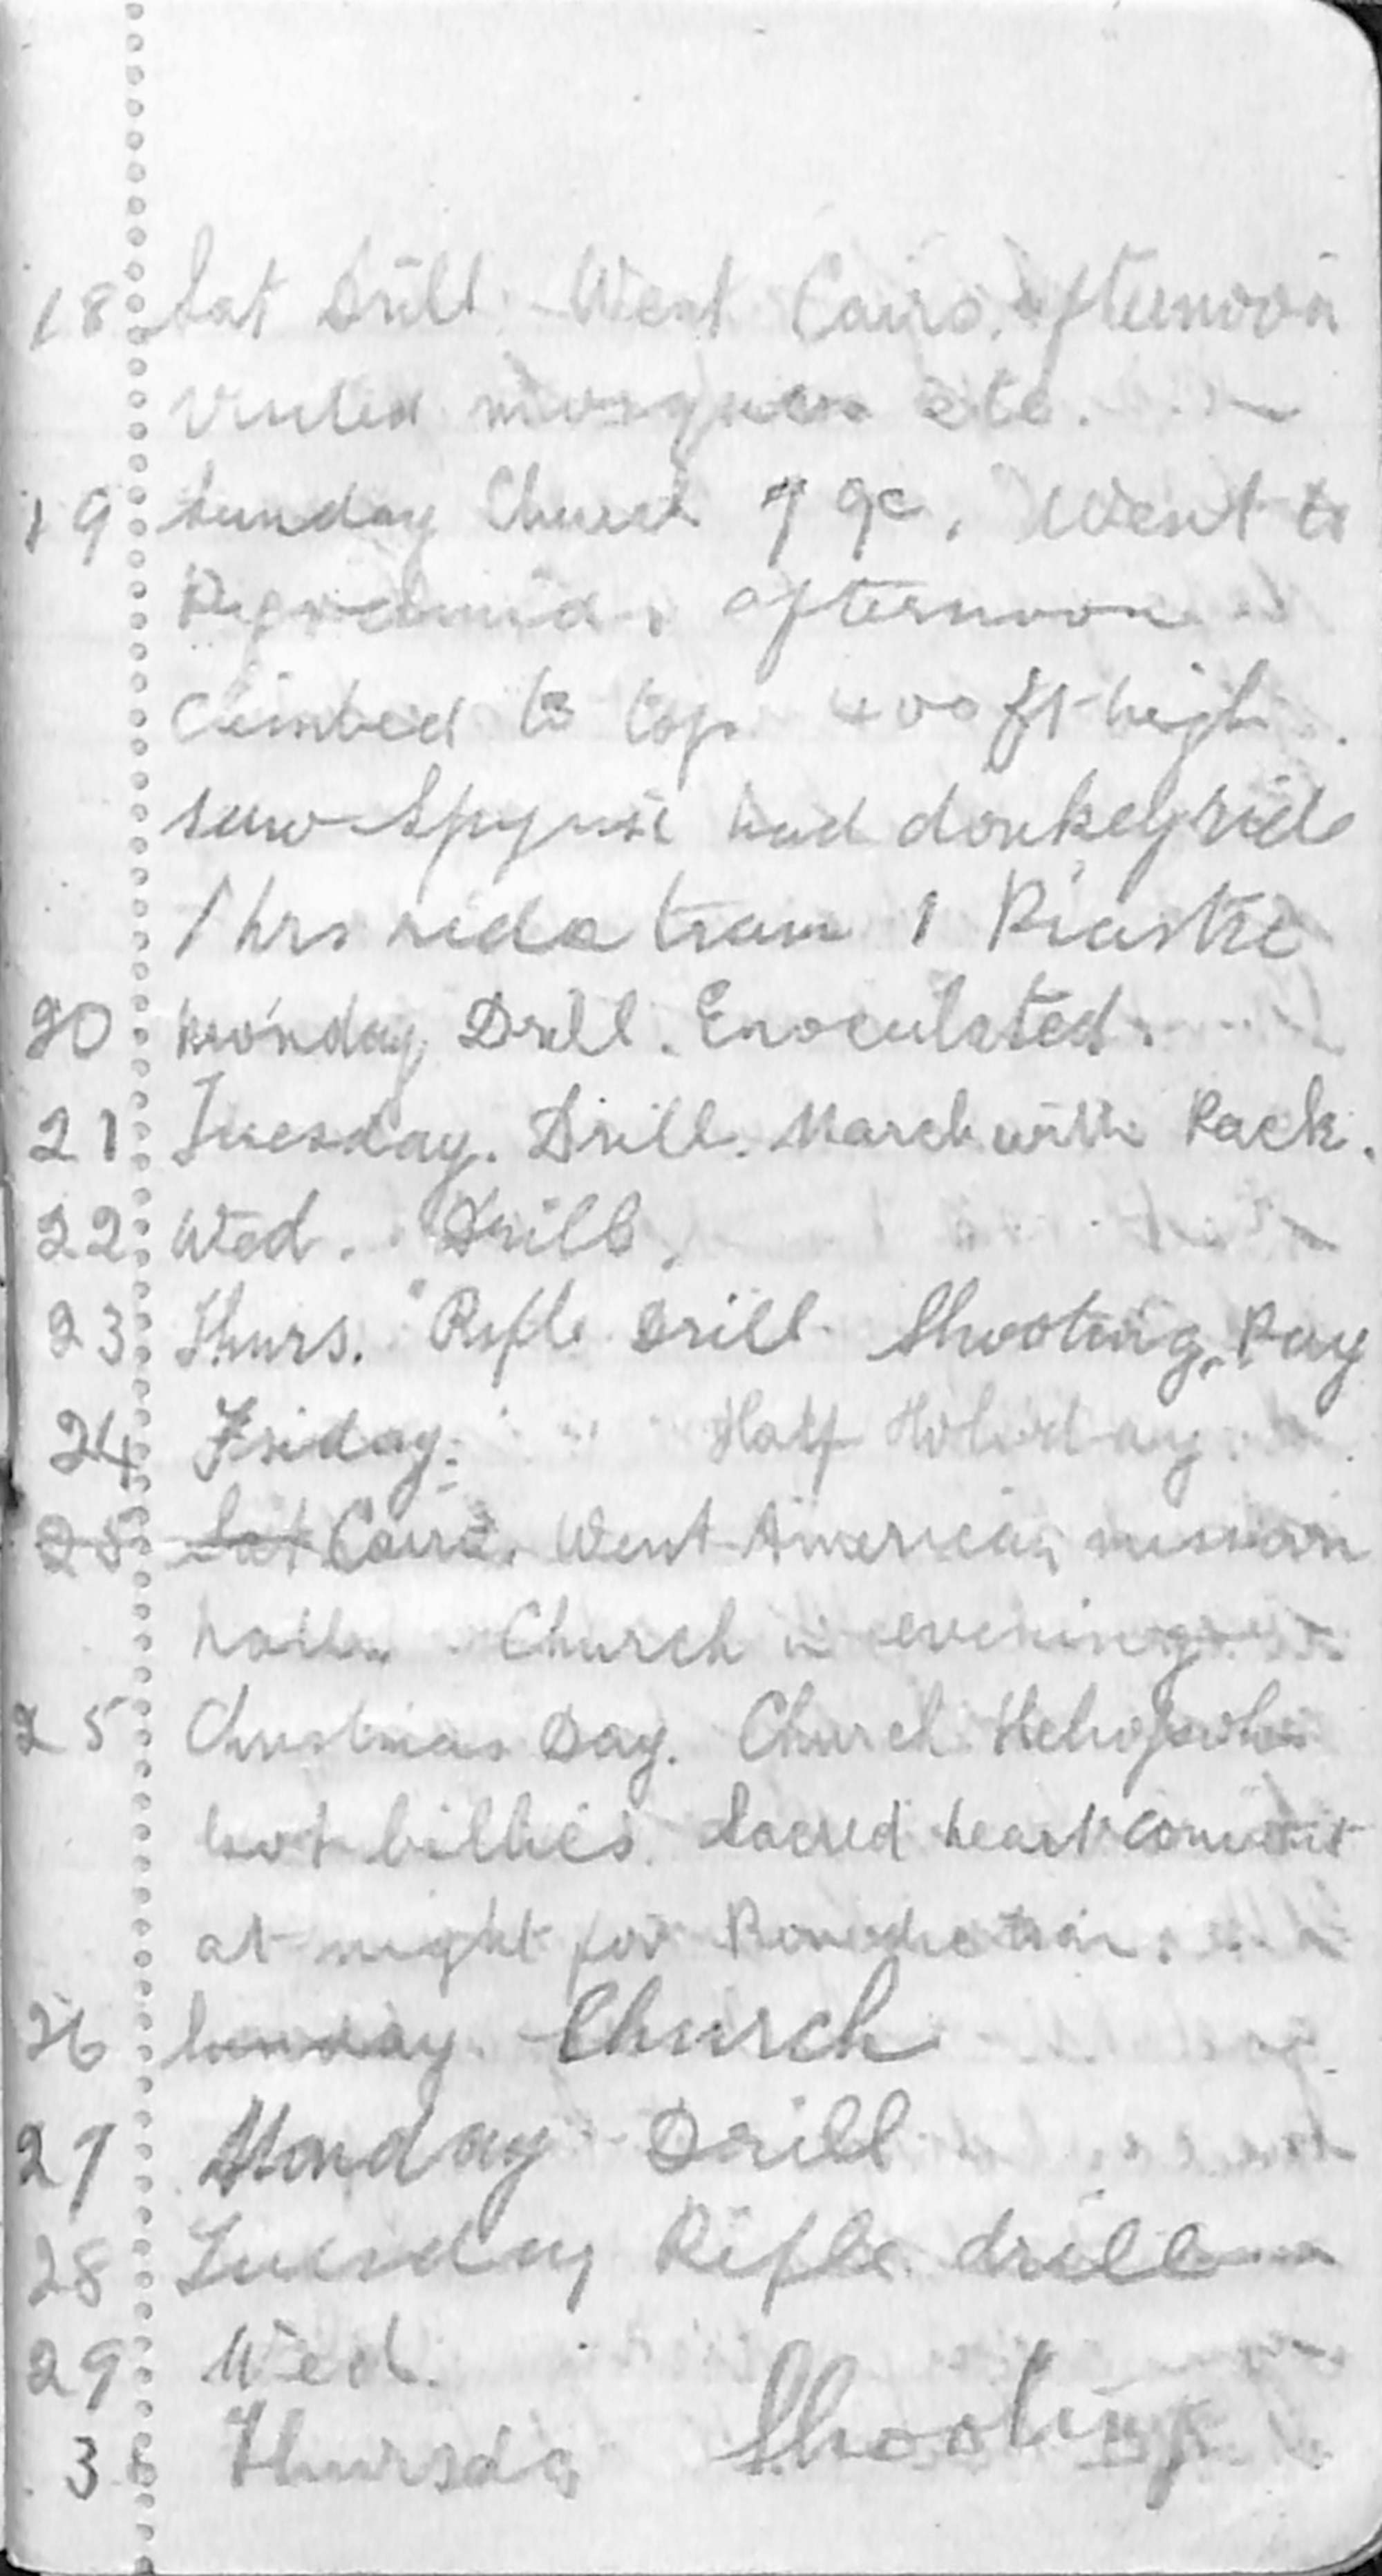 18 Sat Drill Went Cairo. afternoon
Visited mosques etc.
19 Sunday Church Went to
Pyramids afternoon
Climbed to top 400 ft high.
saw Spynx had donkey ride
1 hrs ride tram 1 Piastre
20 Monday Drill. Enoculated.
21 Tuesday. Drill. March with Pack.
22 Wed. Drill.
23 Thurs. Rifle Drill Shooting. Pay
24 Friday. " Half Holiday.
25 Sat Cairo. Went American mission
hall. Church in evening
25 Christmas Day. Church Heliopolis
hot billies. Sacred heart convent
at night for Benediction.
26 Sunday Church
27 Monday Drill
28 Tuesday Rifle drill
29 Wed.
3 Thursday Shooting